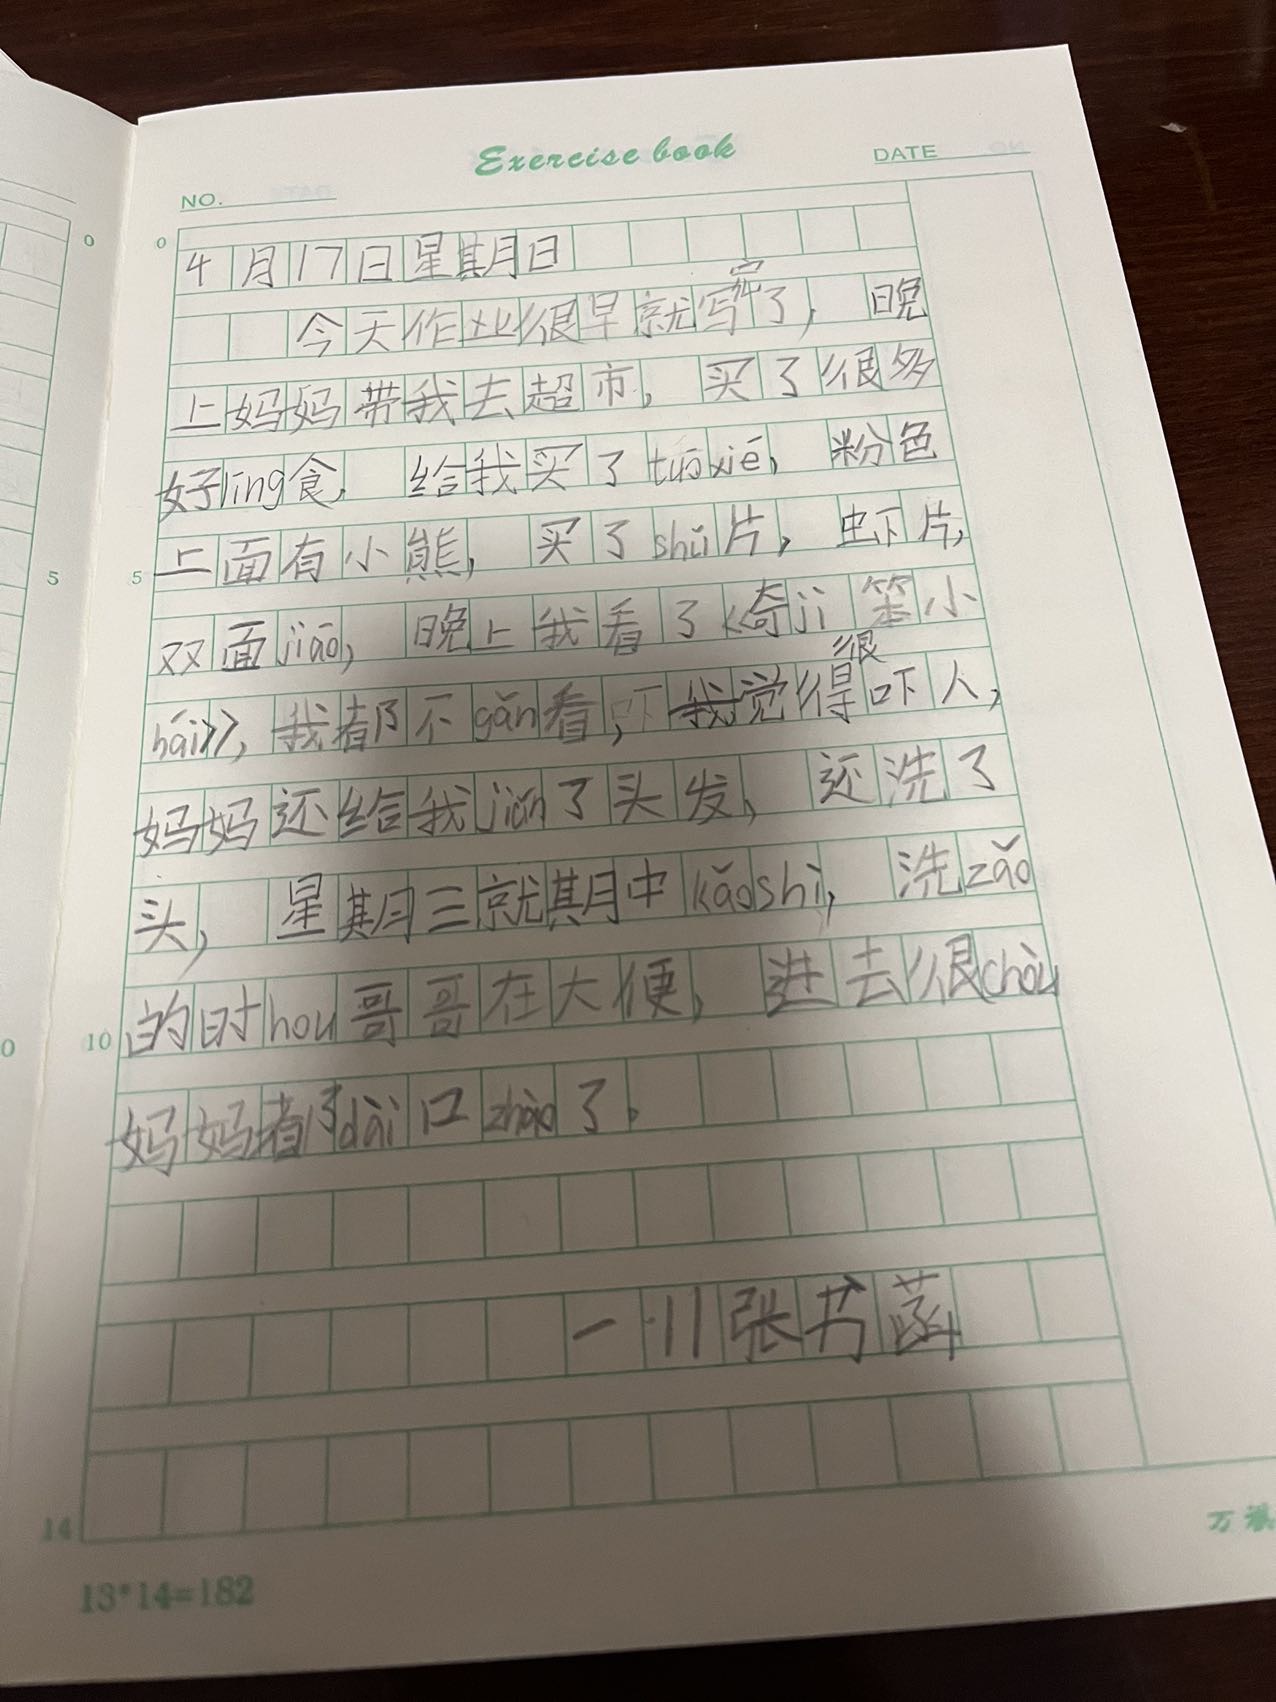 Exercise book
NO.
DATE
0
0
4月17日星期日
今天作业很早就写完了，晚
上妈妈带我去超市，买了很多
好líng食，给我买了tuōxié，粉色
上面有小熊，买了shǔ片，虾片，
5
5
双面jiāo，晚上我看了《奇jì笨小
hái》，我都不gǎn看，我觉得很吓人，
妈妈还给我jiǎn了头发，还洗了
头，星期三就期中kǎoshì，洗zǎo
的时hou哥哥在大便，进去很chòu
0
10
妈妈都dài口zhào了。
一·11张书菡
14
13*14=182